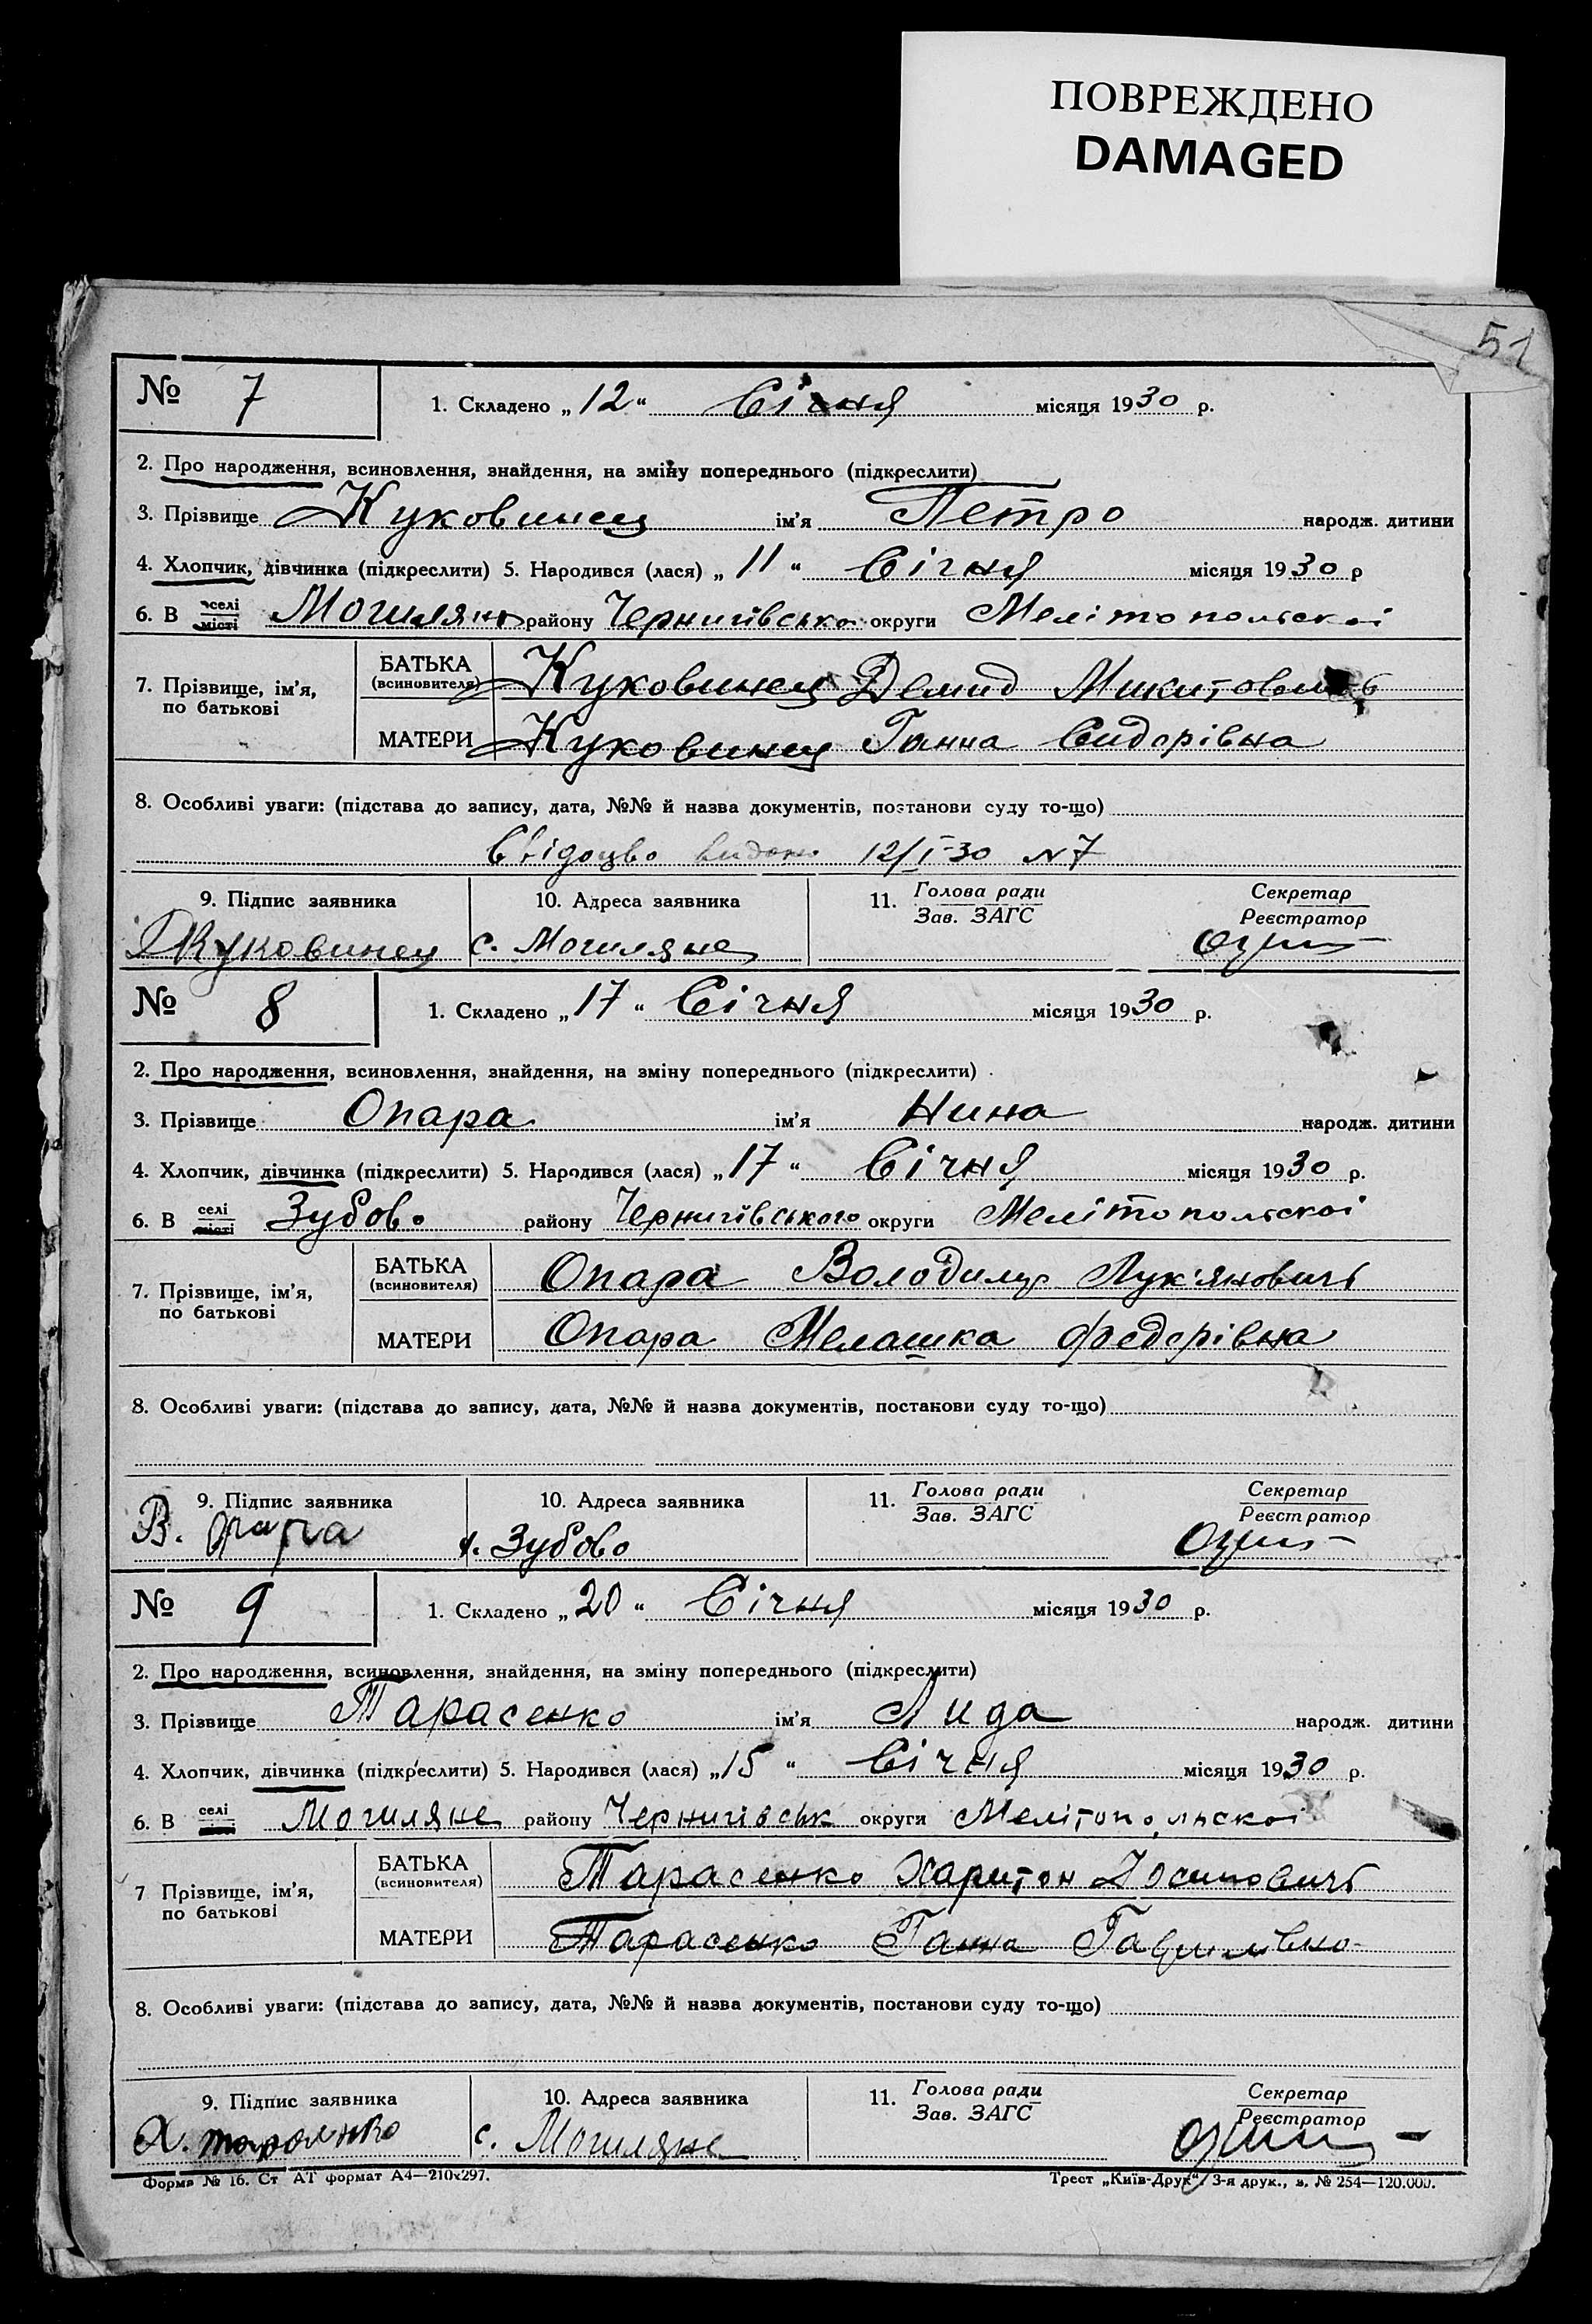 ПОВРЕЖДЕНО
DAMAGED
51
№ 7
1. Складено „12“ Січня місяця 1930 р.
2. Про народження, всиновлення, знайдення, на зміну попереднього (підкреслити)
3. Прізвище Куковинец ім’я Петро народж. дитини
4. Хлопчик, дівчинка (підкреслити) 5. Народився (лася) „11“ Січня місяця 1930 р
6. В селі місті Могиляни району Чернигівсько округи Мелітопольскоі
7. Прізвище, ім’я, по батькові
БАТЬКА (всиновителя) Куковинец Демид Микитович
МАТЕРИ Куковинец Ганна Сидорівна
8. Особливі уваги: (підстава до запису, дата, №№ й назва документів, постанови суду то-що)
Свідоцво видано 12/I-30 N 7
9. Підпис заявника 10. Адреса заявника 11. Голова ради Зав. ЗАГС Секретар Реєстратор
Куковинец с. Могиляне
№ 8
1. Складено „17“ Січня місяця 1930 р.
2. Про народження, всиновлення, знайдення, на зміну попереднього (підкреслити)
3. Прізвище Опара ім’я Нина народж. дитини
4. Хлопчик, дівчинка (підкреслити) 5. Народився (лася) „17“ Січня місяця 1930 р.
6. В селі місті Зубово району Чернигівського округи Мелітопольскоі
7. Прізвище, ім’я, по батькові
БАТЬКА (всиновителя) Опара Володимр Лук'яновичь
МАТЕРИ Опара Мелашка Федорівна
8. Особливі уваги: (підстава до запису, дата, №№ й назва документів, постанови суду то-що)
9. Підпис заявника 10. Адреса заявника 11. Голова ради Зав. ЗАГС Секретар Реєстратор
В. Опара с. Зубово
№ 9
1. Складено „20“ Січня місяця 1930 р.
2. Про народження, всиновлення, знайдення, на зміну попереднього (підкреслити)
3. Прізвище Тарасенко ім’я Лида народж. дитини
4. Хлопчик, дівчинка (підкреслити) 5. Народився (лася) „15“ Січня місяця 1930 р.
6. В селі Могиляне району Чернигівськ округи Мелітопольскоі
7 Прізвище, ім’я, по батькові
БАТЬКА (всиновителя) Тарасенко Харитон Йосиповичь
МАТЕРИ Тарасенко Ганна Гаврилівна
8. Особливі уваги: (підстава до запису, дата, №№ й назва документів, постанови суду то-що)
9. Підпис заявника 10. Адреса заявника 11. Голова ради Зав. ЗАГС Секретар Реєстратор
Х. с. Могиляне
Форма № 16. Ст АТ формат А4—210х297.
Трест „Київ-Друк“. 3-я друк., з. № 254—120.000.